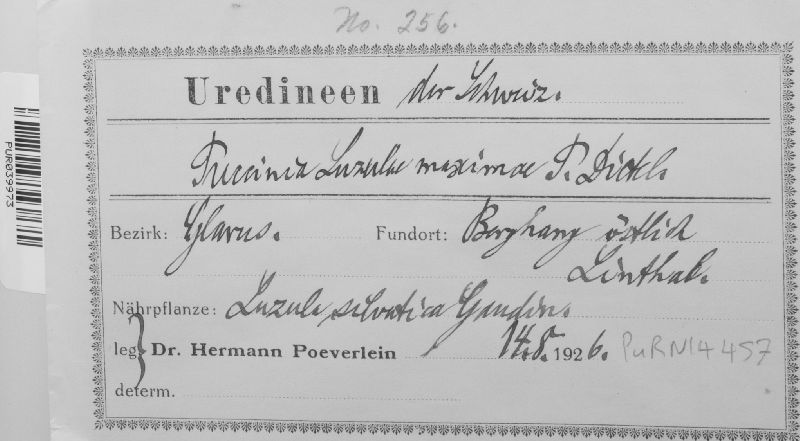 No. 256.
Uredineen der Schweiz.
Puccinia Luzulae maximae P. Dietel.
Bezirk: Glarus. Fundort: Berghang östlich
Linthal.
Nährpflanze: Luzula silvatica Gaudin.
leg. Dr. Hermann Poeverlein 14.8.1926. PURN14457
determ.
PUR039973